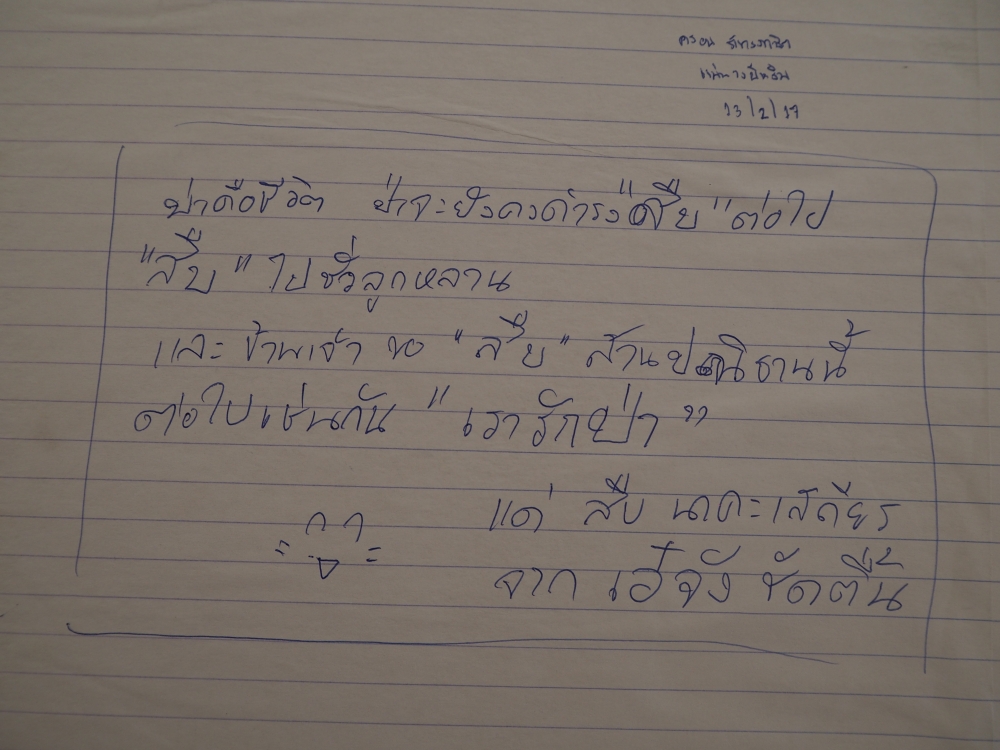 13/2/17
ป่าคือชีวิต ป่าจะยังคงดำรง"สืบ"ต่อไป
"สืบ" ไปชั่วลูกหลาน
และ ข้าพเจ้า ขอ "สืบ" สานปณิธานนี้
ต่อไปเช่นกัน "เรารักป่า"
แด่ สืบ นาคะเสถียร
จาก